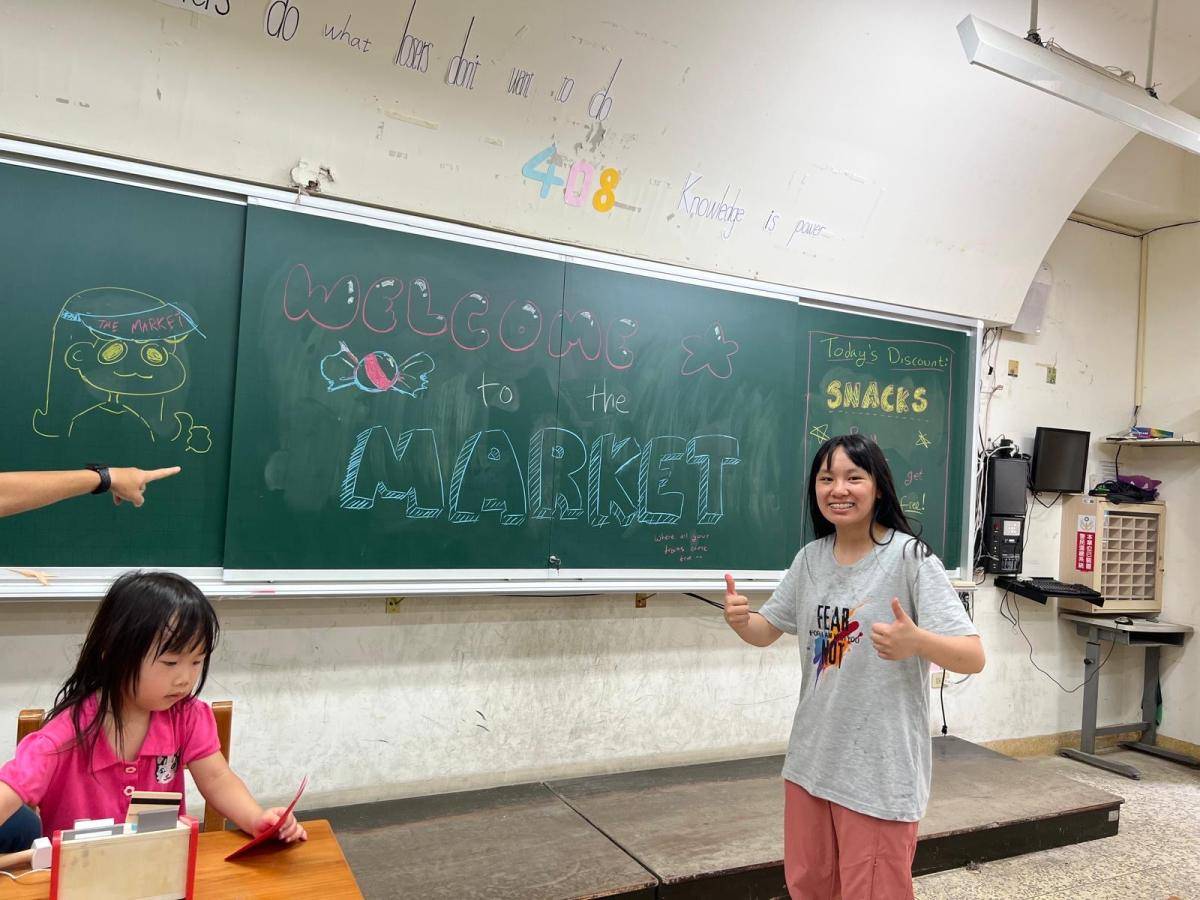 do what losers don't want to do
408
Knowledge is power
THE MARKET
WELCOME
to the
MARKET
Today's Discount:
SNACKS
get
free!
FEAR
NOT